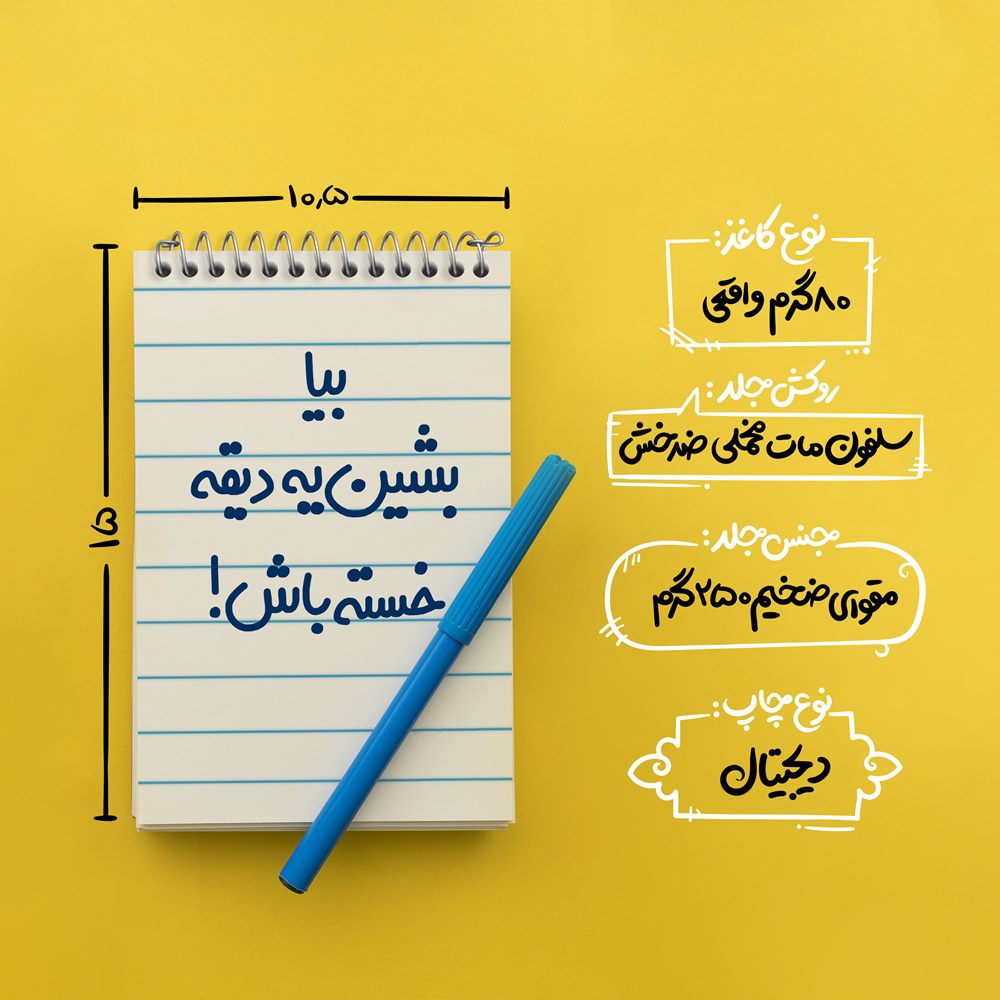 ۱۰٫۵
۱۵
بیا
بشین یه دیقه
خسته باش!
نوع کاغذ:
۸۰گرم واقعی
روکش جلد:
سلفون مات مخملی ضدخش
جنس جلد:
مقوای ضخیم ۲۵۰گرم
نوع چاپ:
دیجیتال